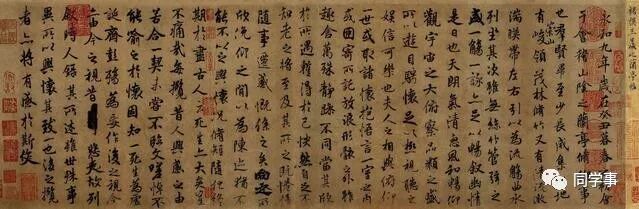 永和九年歲在癸丑暮春之初會
于會稽山陰之蘭亭脩稧事
也羣賢畢至少長咸集此地
有崇山峻領茂林脩竹又有清流激
湍暎帶左右引以為流觴曲水
列坐其次雖無絲竹管弦之
盛一觴一詠亦足以暢敘幽情
是日也天朗氣清惠風和暢仰
觀宇宙之大俯察品類之盛
所以遊目騁懷足以極視聽之
娛信可樂也夫人之相與俯仰
一世或取諸懷抱悟言一室之內
或因寄所託放浪形骸之外雖
趣舍萬殊靜躁不同當其欣
於所遇蹔得於己怏然自足不
知老之將至及其所之既惓情
隨事遷感慨係之矣向之所
欣俛仰之閒以為陳迹猶不
能不以之興懷況脩短隨化終
期於盡古人云死生亦大矣豈
不痛哉每攬昔人興感之由
若合一契未嘗不臨文嗟悼不
能喻之於懷固知一死生為虛
誕齊彭殤為妄作後之視今
亦由今之視昔悲夫故列
敘時人錄其所述雖世殊事
異所以興懷其致一也後之攬
者亦將有感於斯文
同学事